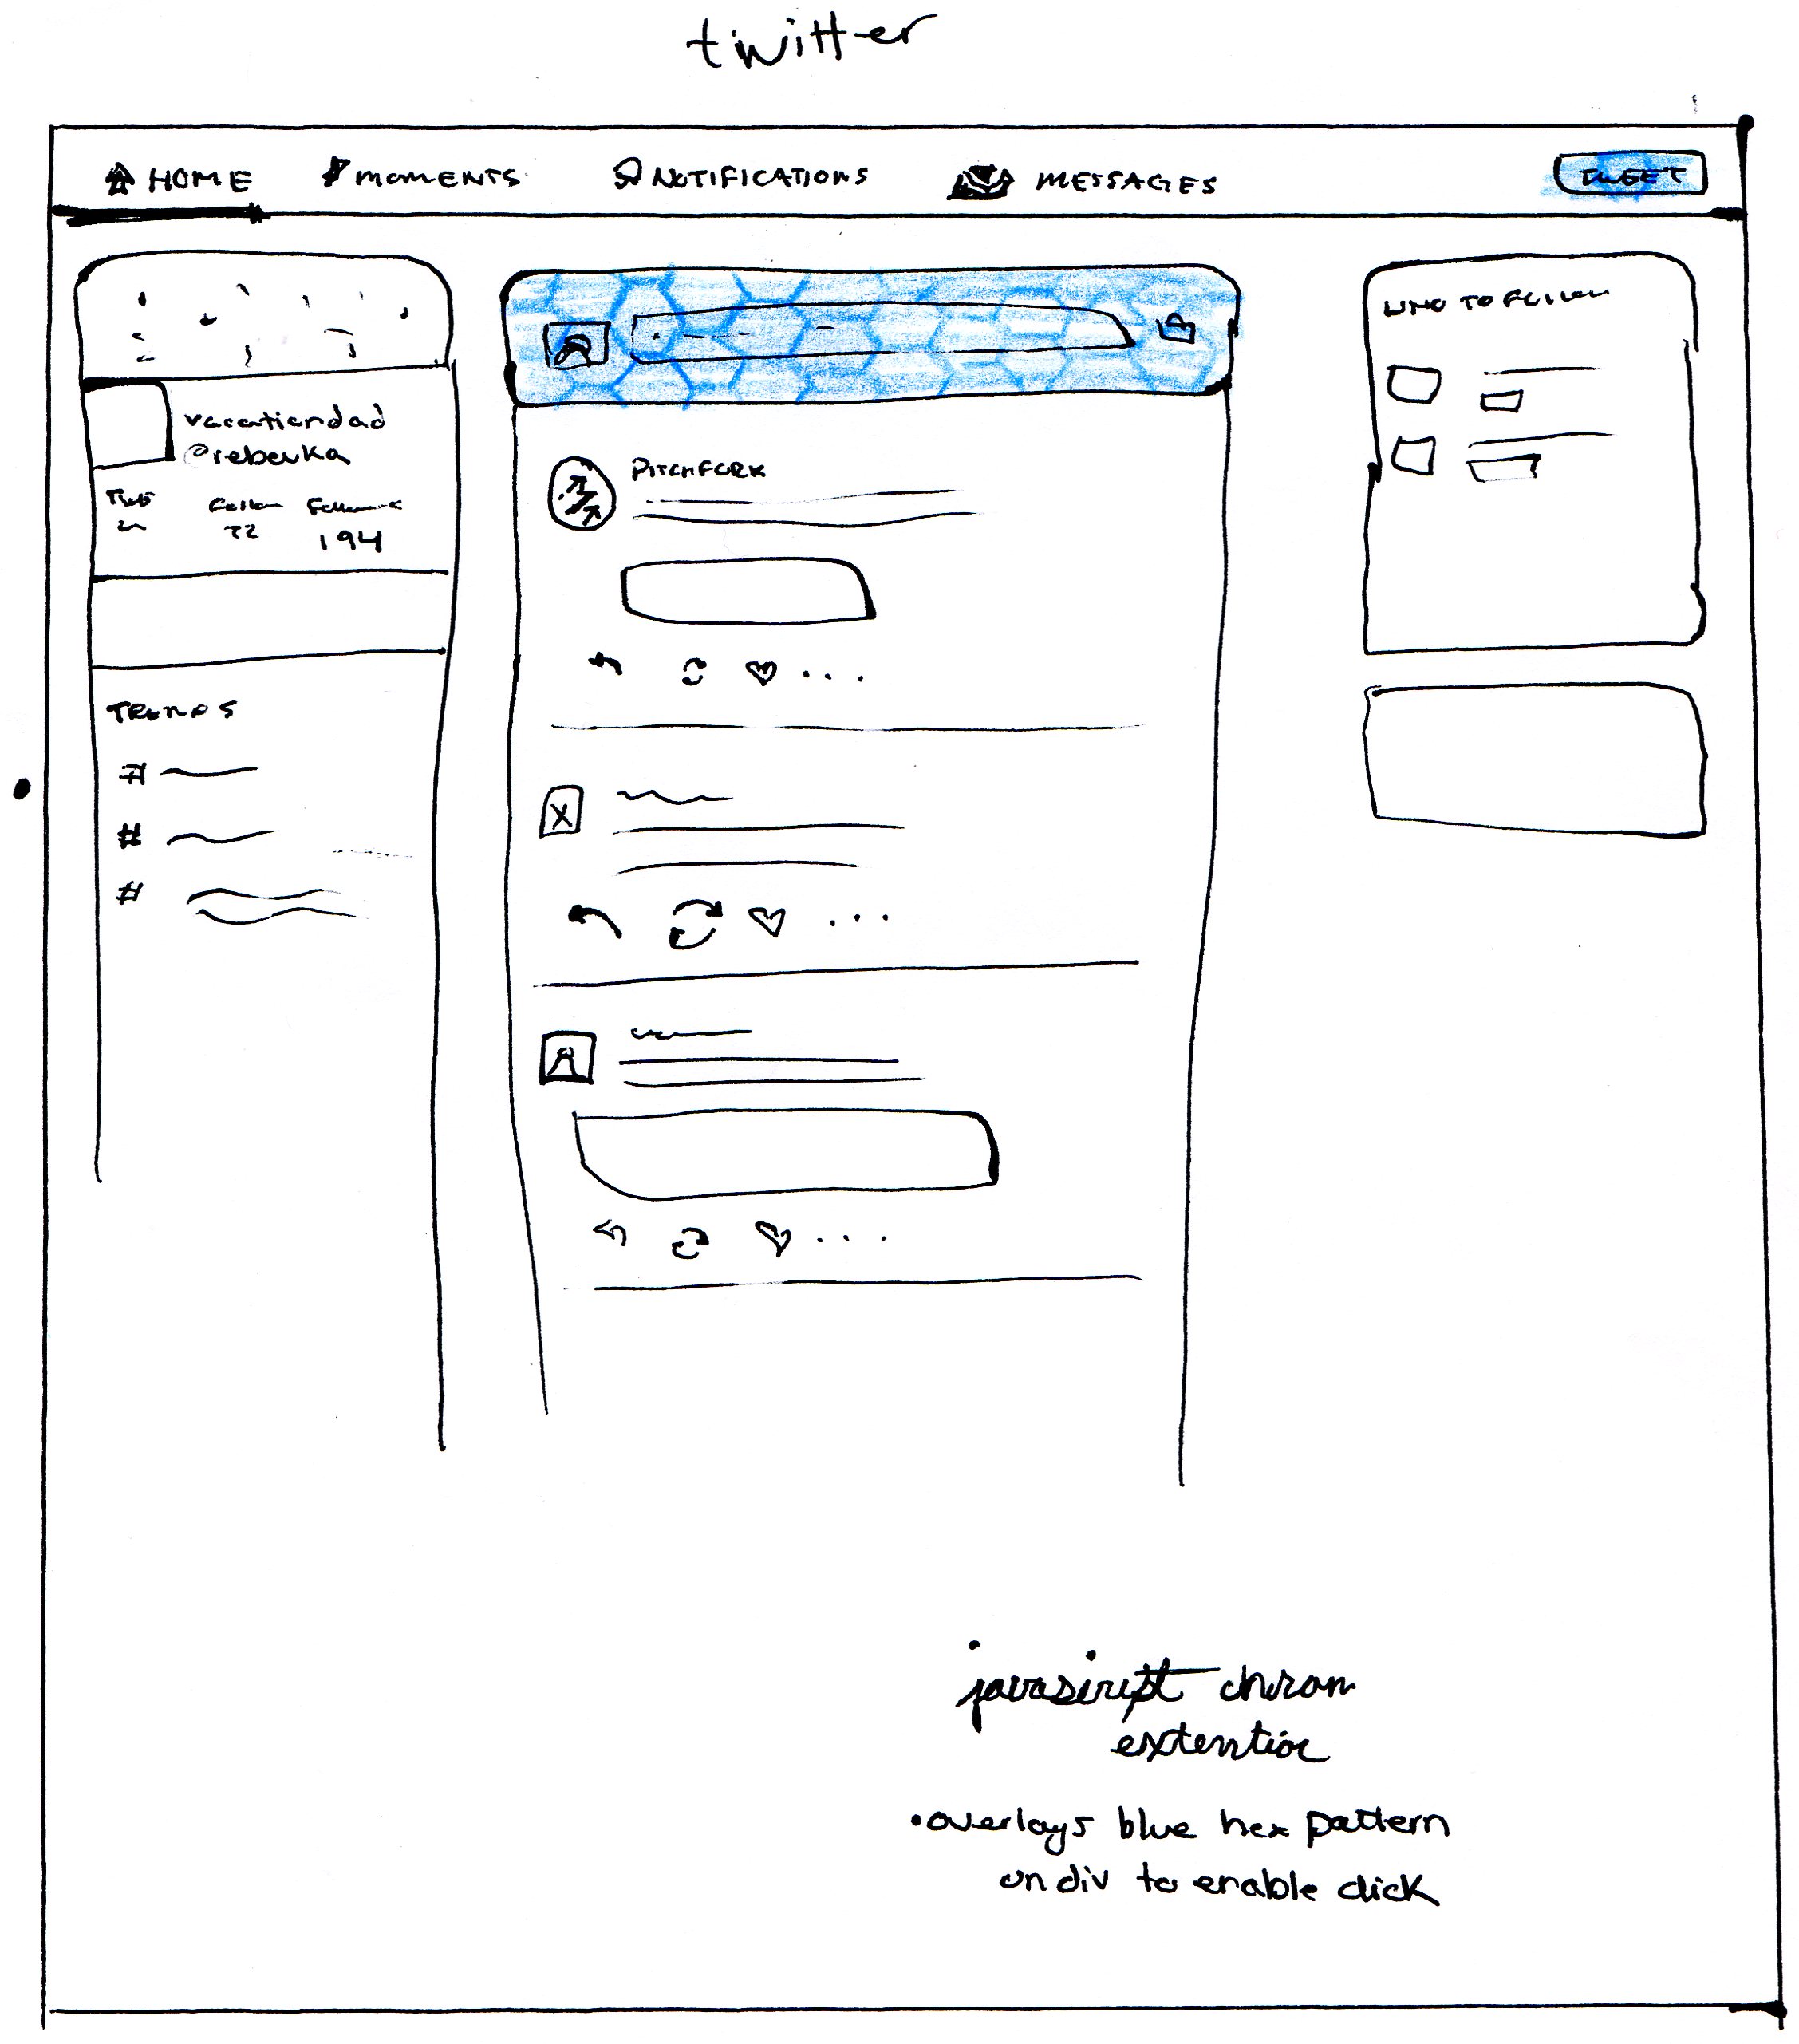 twitter
HOME MOMENTS NOTIFICATIONS MESSAGES TWEET
vacationdad
@rebeuka
194
TRENDS
#
#
#
PITCHFORK
WHO TO FOLLOW
javascript chrom
extentio
• overlays blue hex pattern
on div to enable click